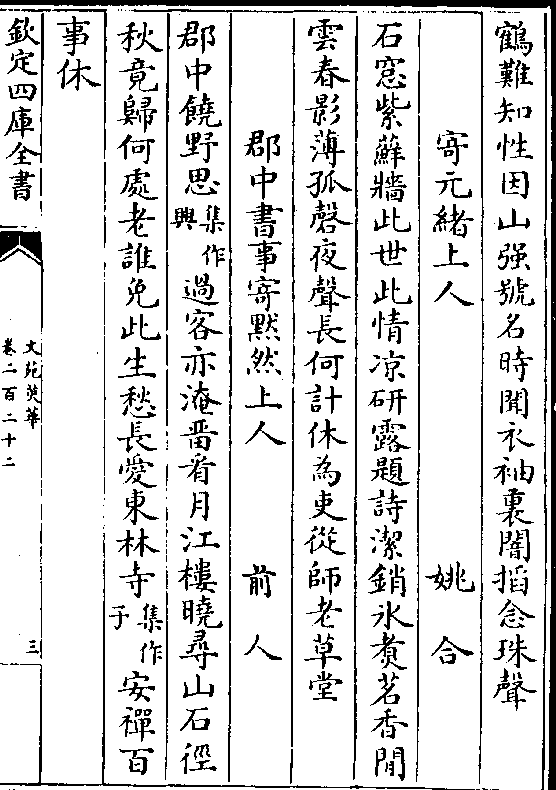 鶴難知性因山强號名時聞衣袖裏闇搯念珠聲
寄元緒上人 姚合
石窓紫蘚牆此世此情凉研露題詩潔銷氷煑茗香閒
雲春影薄孤磬夜聲長何計休為吏從師老草堂
郡中書事寄黙然上人 前人
郡中饒野思集作興過客亦淹畱看月江樓曉尋山石徑
秋竟歸何處老誰免此生愁長愛東林寺集作子安禪百
事休
欽定四庫全書
文苑英華
卷二百二十二
三